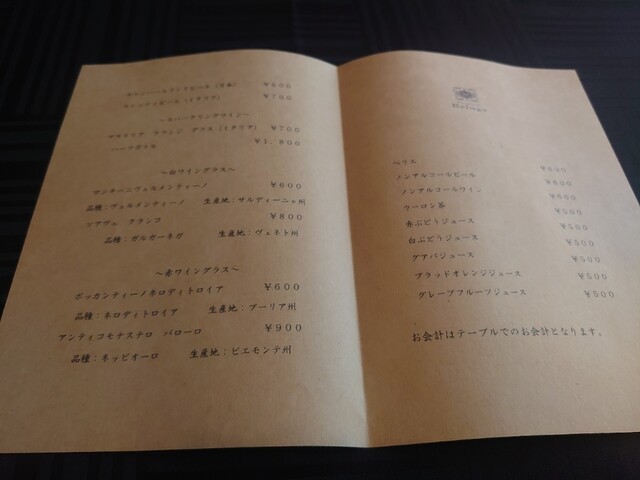 キリンハートランドビール（日本） ￥600
モレッティビール（イタリア） ￥700
～スパークリングワイン～
グラス（イタリア） ￥700
ハーフボトル ￥1,800
～白ワイングラス～
マンチーニヴェルメンティーノ ￥600
品種：ヴェルメンティーノ 生産地：サルディーニャ州
ソアヴェ クラシコ ￥800
品種：ガルガーネガ 生産地：ヴェネト州
～赤ワイングラス～
ボッカンティーノネロディトロイア ￥600
品種：ネロディトロイア 生産地：プーリア州
アンティコモナステロ バローロ ￥900
品種：ネッビオーロ 生産地：ピエモンテ州
Refuge
ペリエ ￥600
ノンアルコールビール ￥600
ノンアルコールワイン ￥600
ウーロン茶 ￥500
赤ぶどうジュース ￥500
白ぶどうジュース ￥500
グアバジュース ￥500
ブラッドオレンジジュース ￥500
グレープフルーツジュース ￥500
お会計はテーブルでのお会計となります。